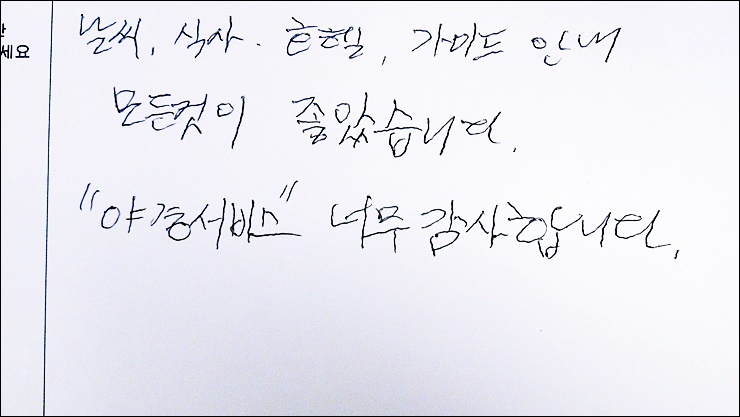 날씨, 식사. 호텔, 가이드 안내
세요
모든것이 좋았습니다.
"야경서비스" 너무 감사합니다.